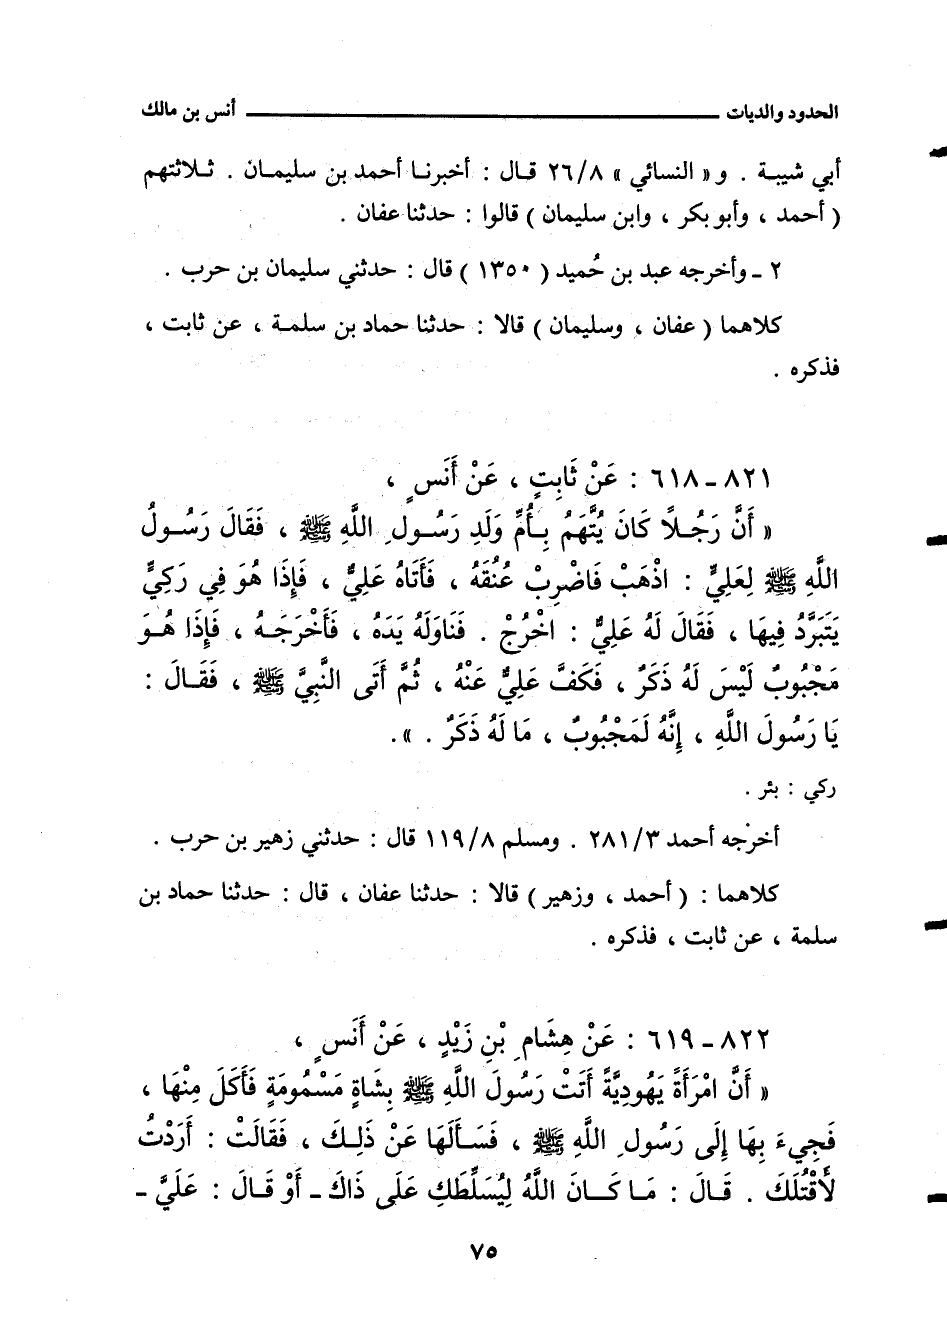 الحدود والديات ــــــــــــــــــــ أنس بن مالك
أبي شيبة . و« النسائي » ٢٦/٨ قال : أخبرنا أحمد بن سليمان . ثلاثتهم
( أحمد ، وأبو بكر ، وابن سليمان ) قالوا : حدثنا عفان .
٢ ـ وأخرجه عبد بن حُميد ( ١٣٥٠ ) قال : حدثني سليمان بن حرب .
كلاهما ( عفان ، وسليمان ) قالا : حدثنا حماد بن سلمة ، عن ثابت ،
فذكره .
٨٢١ ـ ٦١٨ : عَنْ ثَابِتٍ ، عَنْ أَنَسٍ ،
« أَنَّ رَجُلاً كَانَ يُتَّهَمُ بِأُمِّ وَلَدِ رَسُولِ اللَّهِ ﷺ ، فَقَالَ رَسُولُ
اللَّهِ ﷺ لِعَلِيٍّ : اذْهَبْ فَاضْرِبْ عُنُقَهُ ، فَأَتَاهُ عَلِيٌّ ، فَإِذَا هُوَ فِي رَكِيٍّ
يَتَبَرَّدُ فِيهَا ، فَقَالَ لَهُ عَلِيٌّ : اخْرُجْ . فَنَاوَلَهُ يَدَهُ ، فَأَخْرَجَهُ ، فَإِذَا هُوَ
مَجْبُوبٌ لَيْسَ لَهُ ذَكَرٌ ، فَكَفَّ عَلِيٌّ عَنْهُ ، ثُمَّ أَتَى النَّبِيَّ ﷺ ، فَقَالَ :
يَا رَسُولَ اللَّهِ ، إِنَّهُ لَمَجْبُوبٌ ، مَا لَهُ ذَكَرٌ . ».
ركي : بئر .
أخرجه أحمد ٢٨١/٣ . ومسلم ١١٩/٨ قال : حدثني زهير بن حرب .
كلاهما : ( أحمد ، وزهير ) قالا : حدثنا عفان ، قال : حدثنا حماد بن
سلمة ، عن ثابت ، فذكره .
٨٢٢ ـ ٦١٩ : عَنْ هِشَامِ بْنِ زَيْدٍ ، عَنْ أَنَسٍ ،
« أَنَّ امْرَأَةً يَهُودِيَّةً أَتَتْ رَسُولَ اللَّهِ ﷺ بِشَاةٍ مَسْمُومَةٍ فَأَكَلَ مِنْهَا ،
فَجِيءَ بِهَا إِلَى رَسُولِ اللَّهِ ﷺ ، فَسَأَلَهَا عَنْ ذَلِكَ ، فَقَالَتْ : أَرَدْتُ
لأَقْتُلَكَ . قَالَ : مَا كَانَ اللَّهُ لِيُسَلِّطَكِ عَلَى ذَاكَ ـ أَوْ قَالَ : عَلَيَّ ـ
٧٥